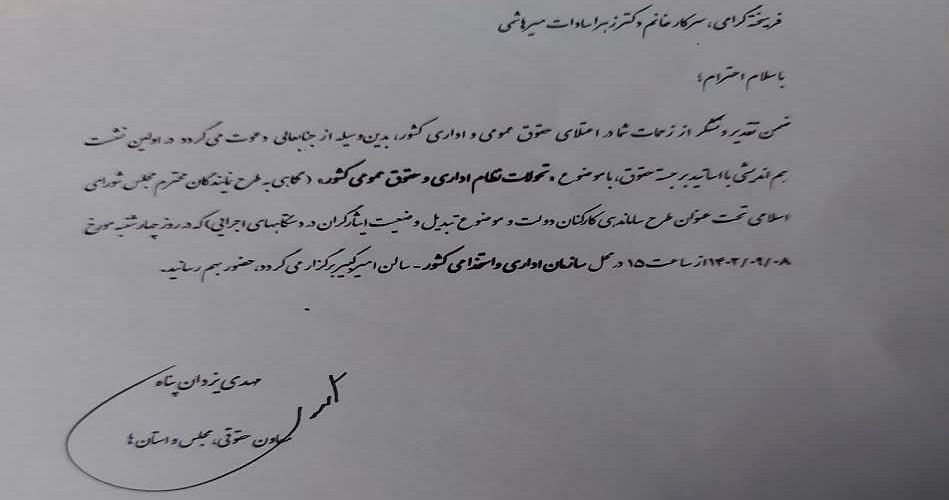 فرهیخته گرامی، سرکار خانم دکتر زهرا سادات میرهاشمی
با سلام احترام؛
ضمن تقدیر و تشکر از زحمات شما در اعتلای حقوق عمومی و اداری کشور، بدین‌وسیله از جنابعالی دعوت می‌گردد در اولین نشست
هم اندیشی با اساتید برجسته حقوق، با موضوع «تحولات نظام اداری و حقوق عمومی کشور» (نگاهی به طرح نمایندگان محترم مجلس شورای
اسلامی تحت عنوان طرح ساماندهی کارکنان دولت و موضوع تبدیل وضعیت ایثارگران در دستگاههای اجرایی) که در روز چهارشنبه مورخ
۱۴۰۲/۰۹/۰۸ از ساعت ۱۵ در محل سازمان اداری و استخدامی کشور - سالن امیرکبیر برگزار می‌گردد، حضور بهم رسانید.
مهدی یزدان پناه
معاون حقوقی، مجلس و استان ها